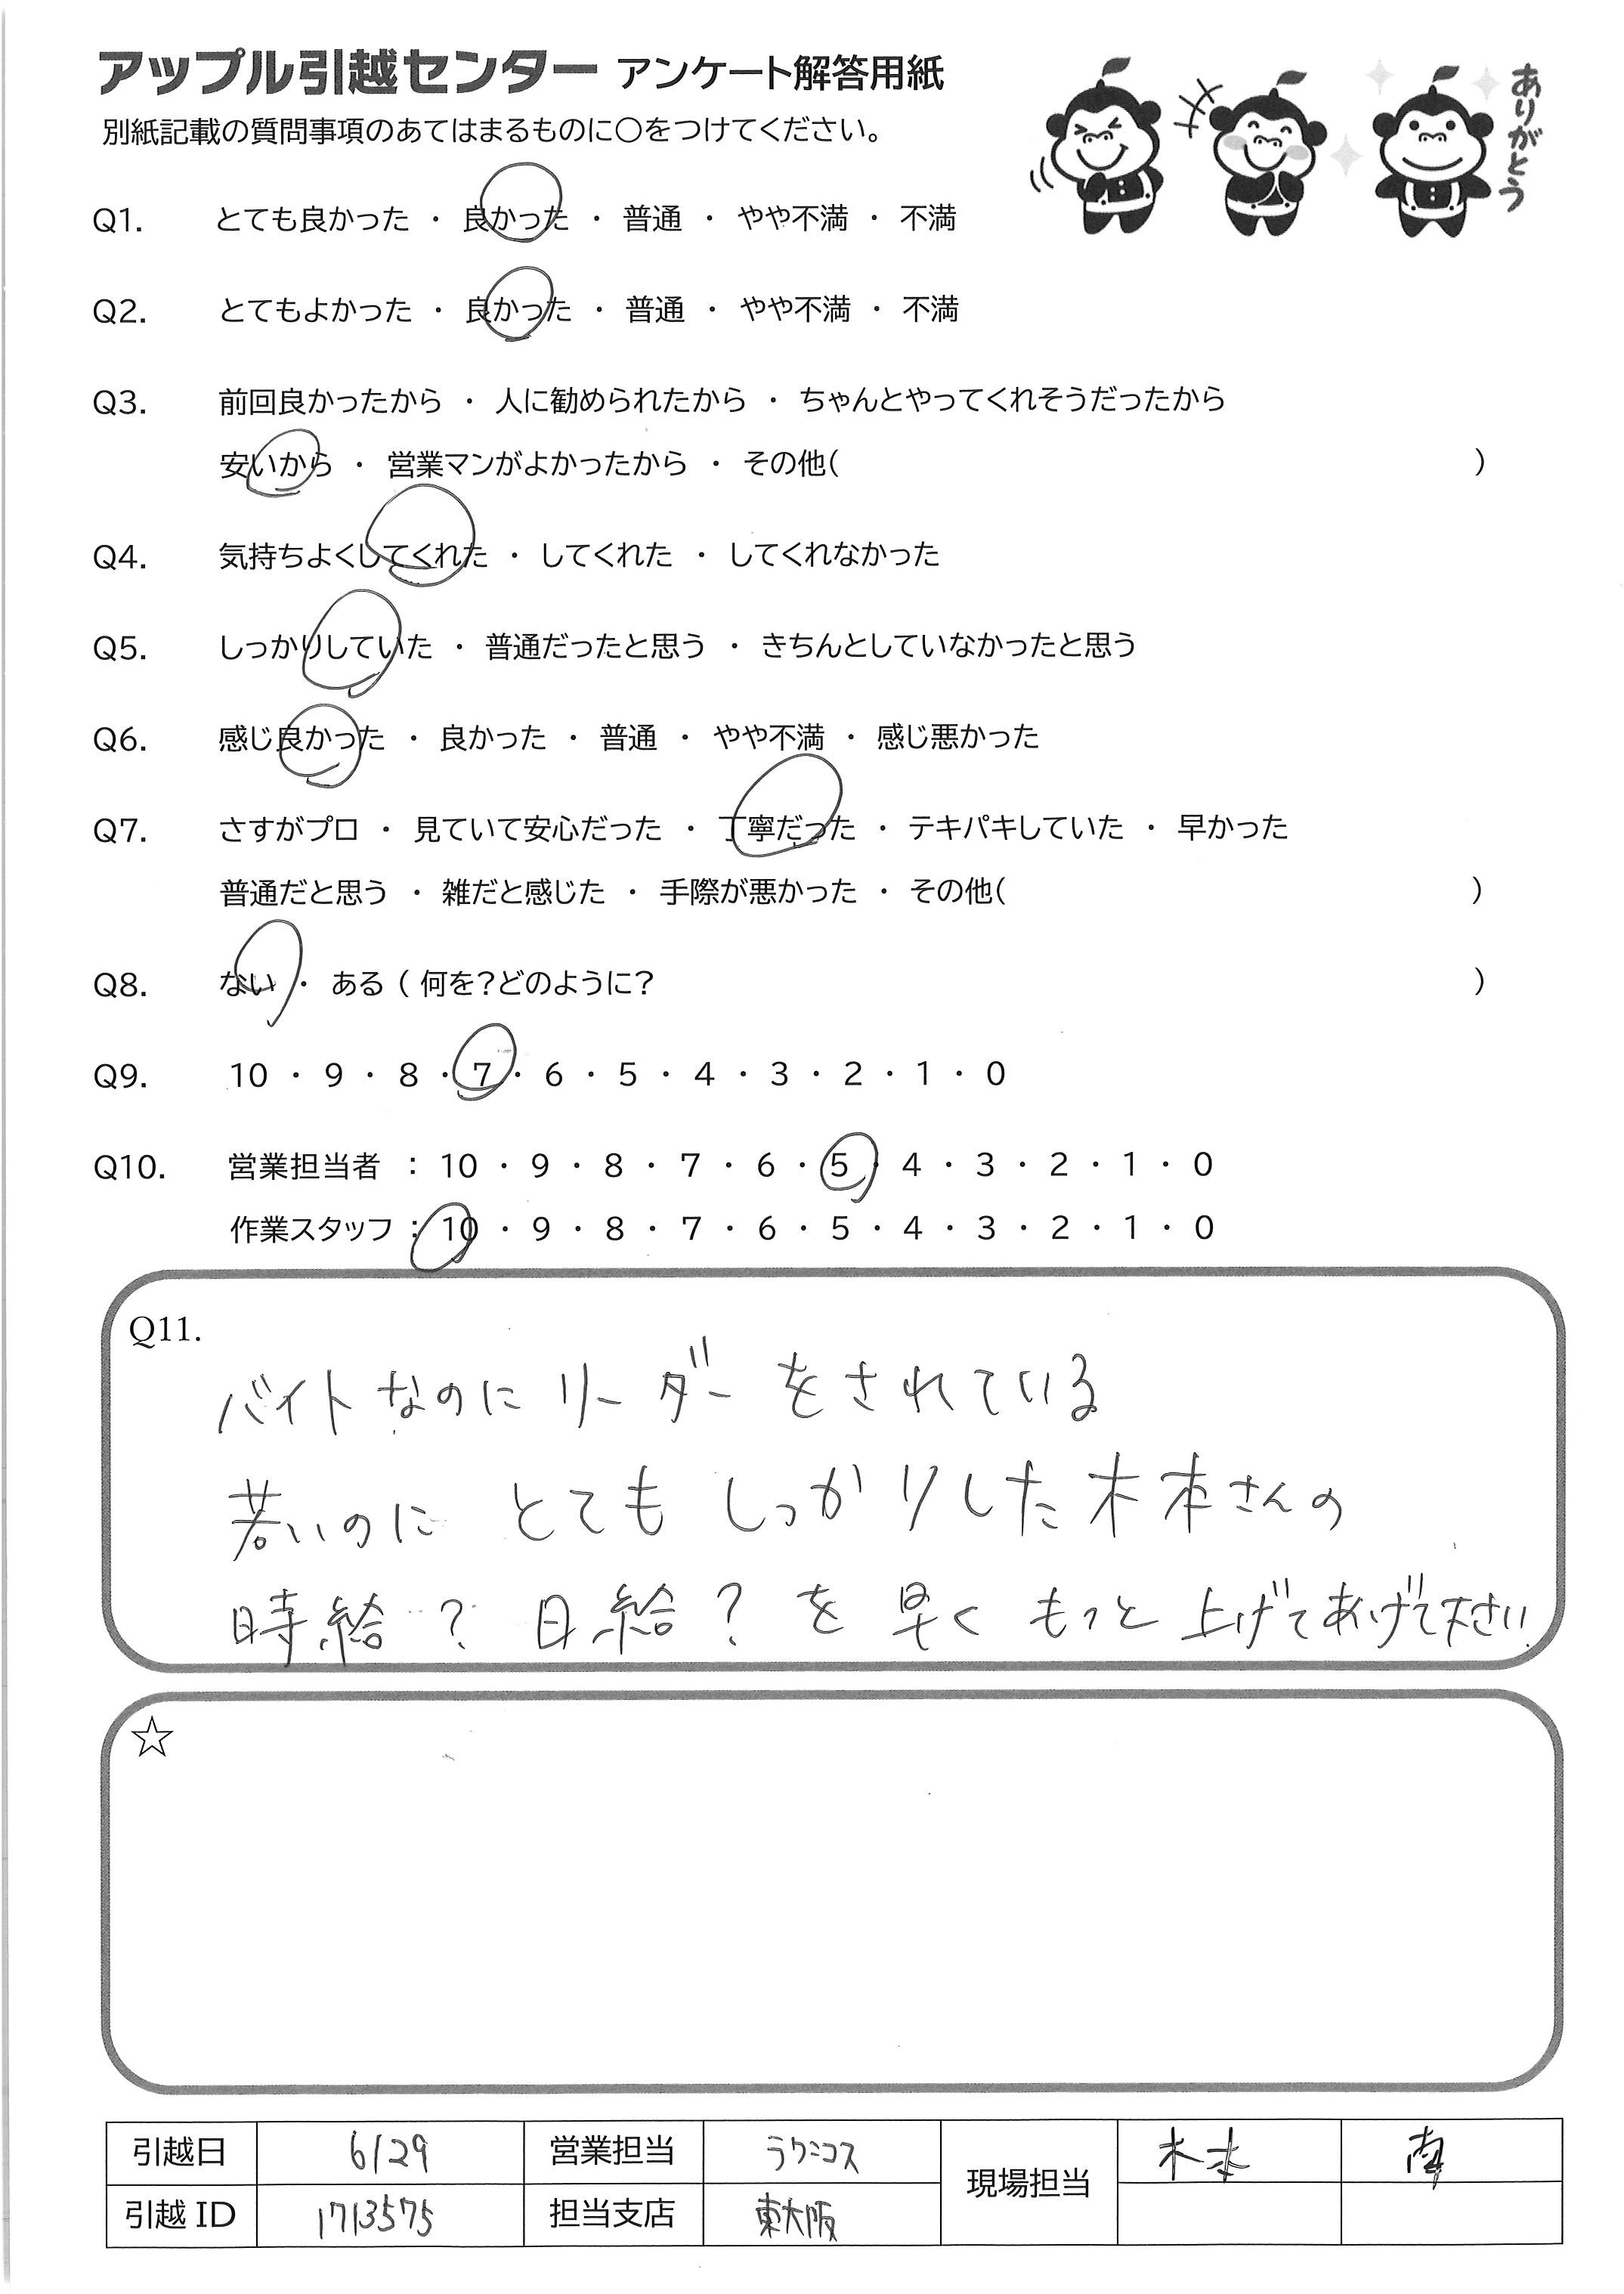 アップル引越センター アンケート解答用紙
ありがとう
別紙記載の質問事項のあてはまるものに○をつけてください。
Q1. とても良かった ・ 良かった ・ 普通 ・ やや不満 ・ 不満
Q2. とてもよかった ・ 良かった ・ 普通 ・ やや不満 ・ 不満
Q3. 前回良かったから ・ 人に勧められたから ・ ちゃんとやってくれそうだったから
安いから ・ 営業マンがよかったから ・ その他( )
Q4. 気持ちよくしてくれた ・ してくれた ・ してくれなかった
Q5. しっかりしていた ・ 普通だったと思う ・ きちんとしていなかったと思う
Q6. 感じ良かった ・ 良かった ・ 普通 ・ やや不満 ・ 感じ悪かった
Q7. さすがプロ ・ 見ていて安心だった ・ 丁寧だった ・ テキパキしていた ・ 早かった
普通だと思う ・ 雑だと感じた ・ 手際が悪かった ・ その他( )
Q8. ない ・ ある ( 何を?どのように? )
Q9. 10 ・ 9 ・ 8 ・ 7 ・ 6 ・ 5 ・ 4 ・ 3 ・ 2 ・ 1 ・ 0
Q10. 営業担当者 : 10 ・ 9 ・ 8 ・ 7 ・ 6 ・ 5 ・ 4 ・ 3 ・ 2 ・ 1 ・ 0
作業スタッフ : 10 ・ 9 ・ 8 ・ 7 ・ 6 ・ 5 ・ 4 ・ 3 ・ 2 ・ 1 ・ 0
Q11.
バイトなのに リーダーをされている
若いのに とても しっかりした木本さんの
時給？ 日給？ を 早く もっと 上げてあげて下さい
☆
引越日 6/29 営業担当 ラクニコス 現場担当 木本 南
引越 ID 1713575 担当支店 東大阪